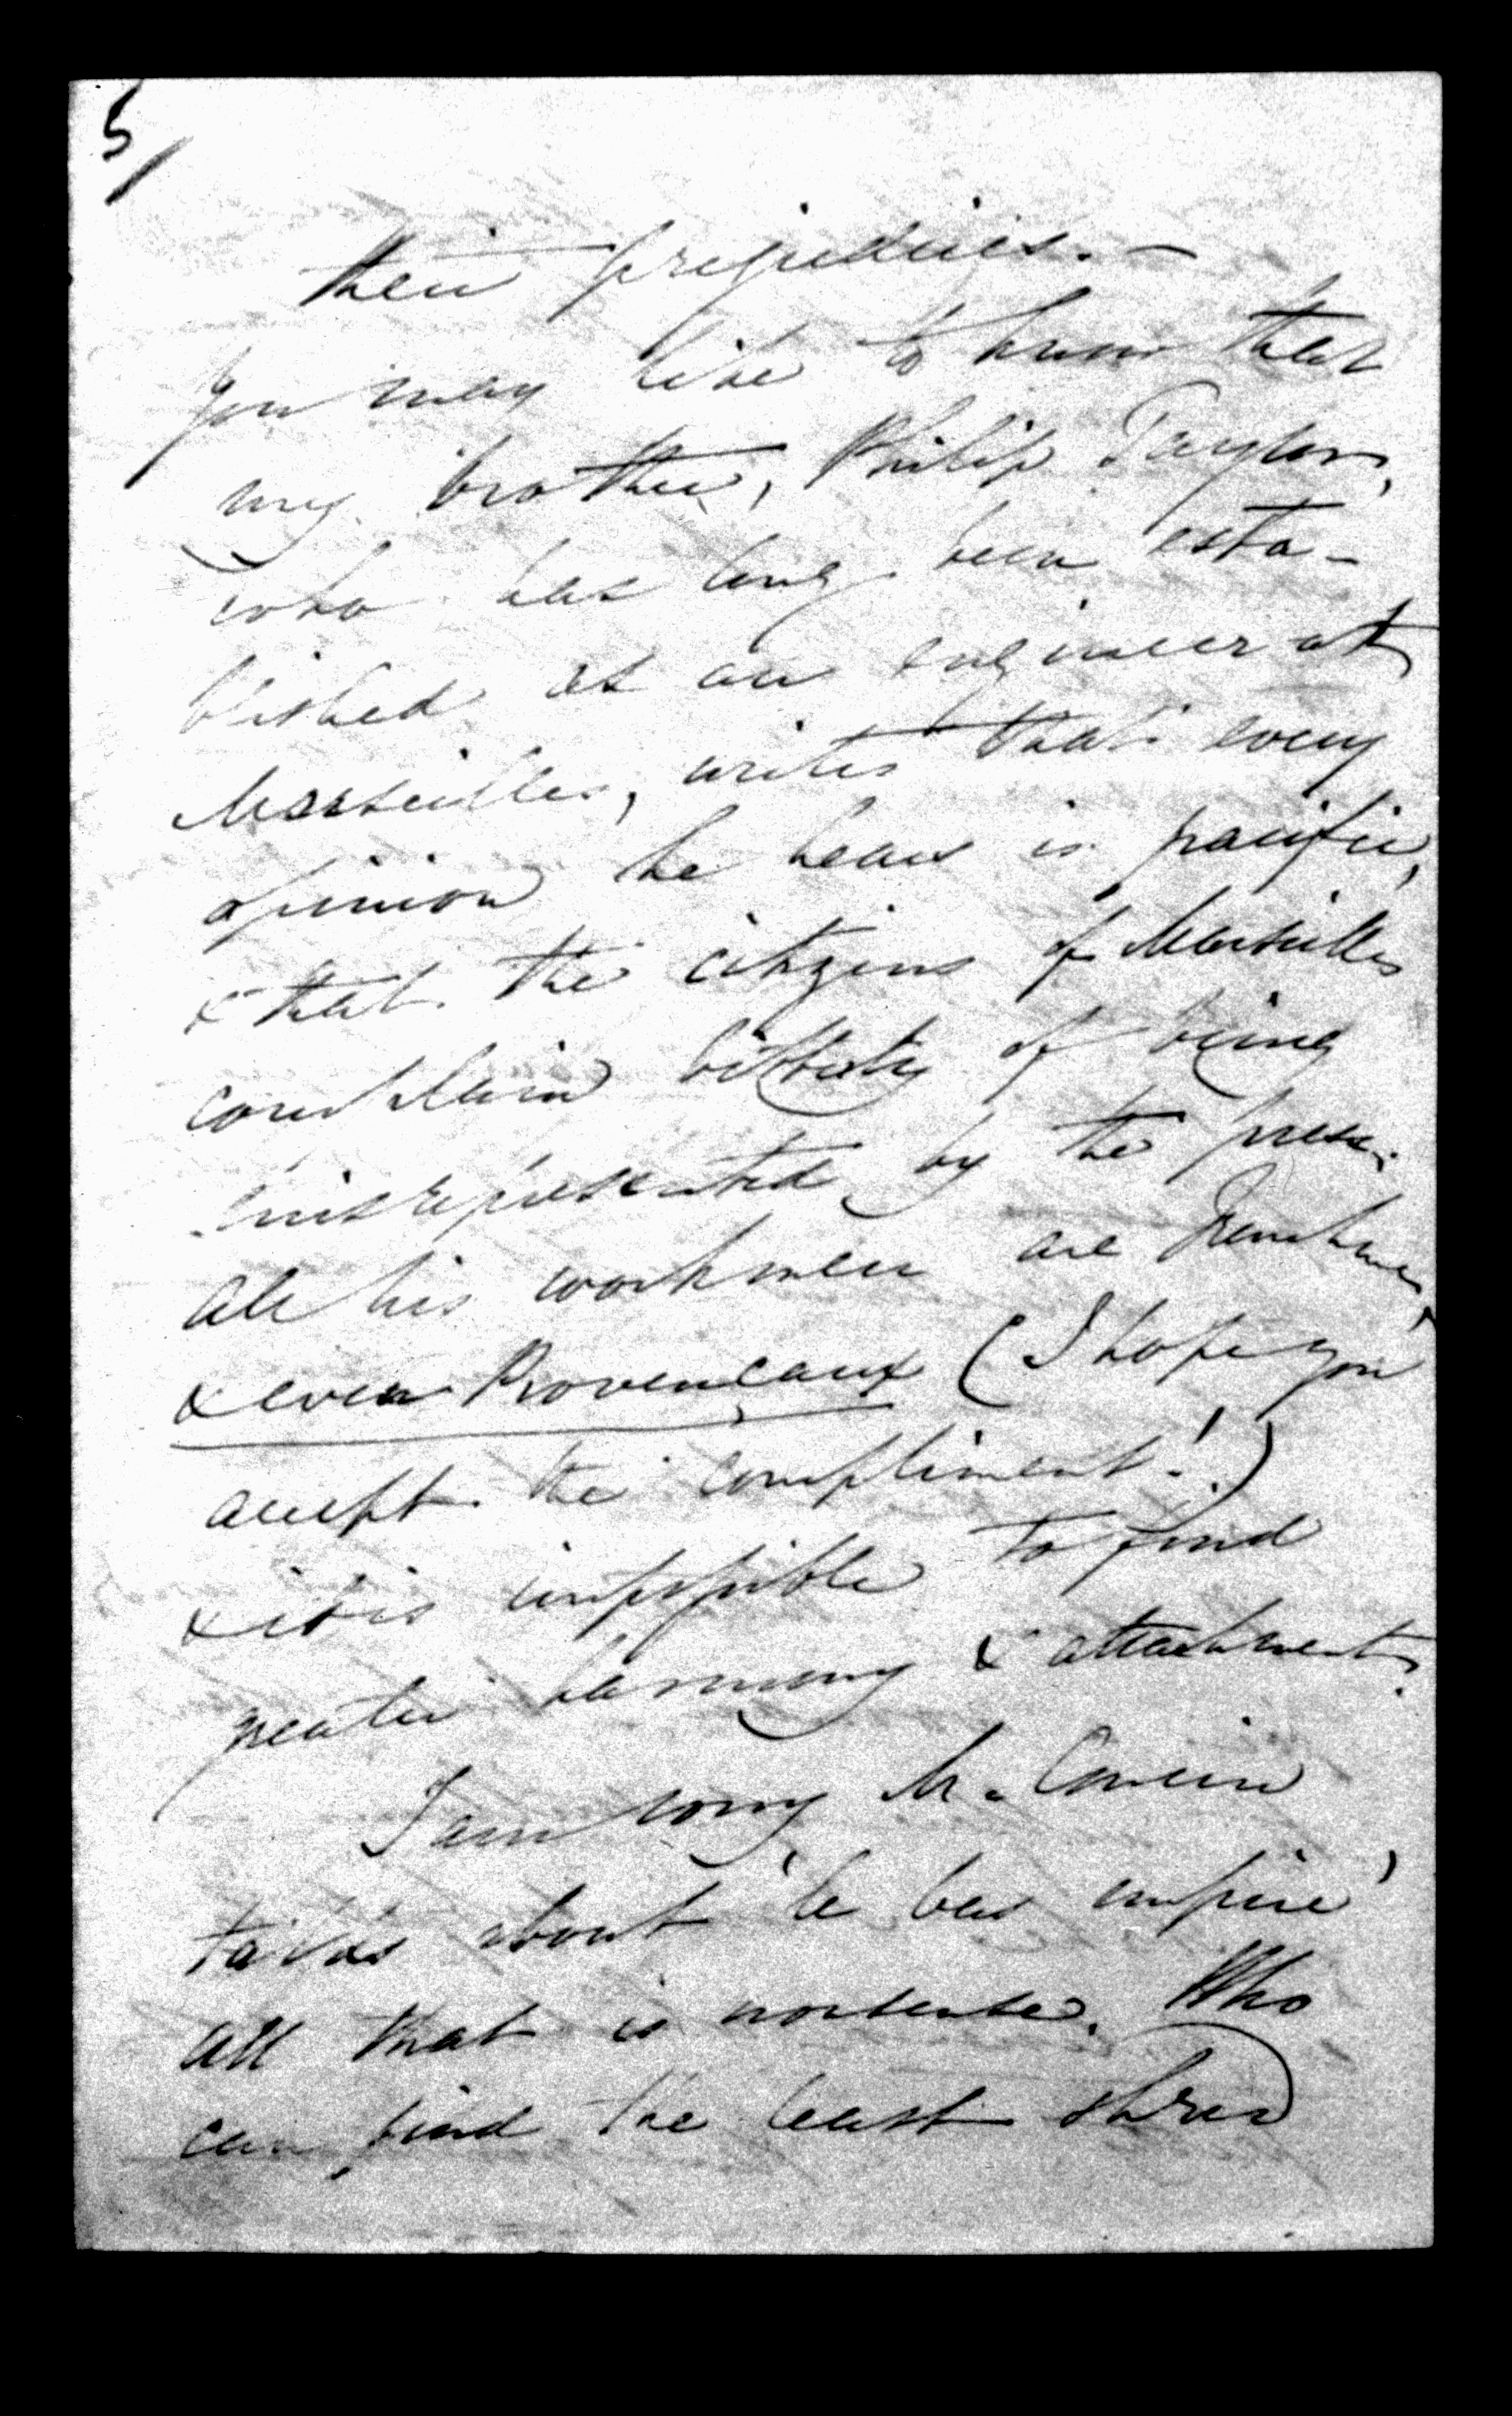 5/
their prejudices. —
You may like to know that
my brother, Philip Taylor,
who has long been esta-
blished as an engineer at
Marseilles, writes that every
opinion he hears is pacific,
& that the citizens of Marseilles
complain bitterly of being
misrepresented by the press.
All his workmen are Frenchmen,
& even Provencaux (I hope you
accept the compliment!)
& it is impossible to find
greater harmony & attachment.
I am sorry M. Cousin
talks about 'le bas empire'
all that is nonsense. Who
can find the least shred